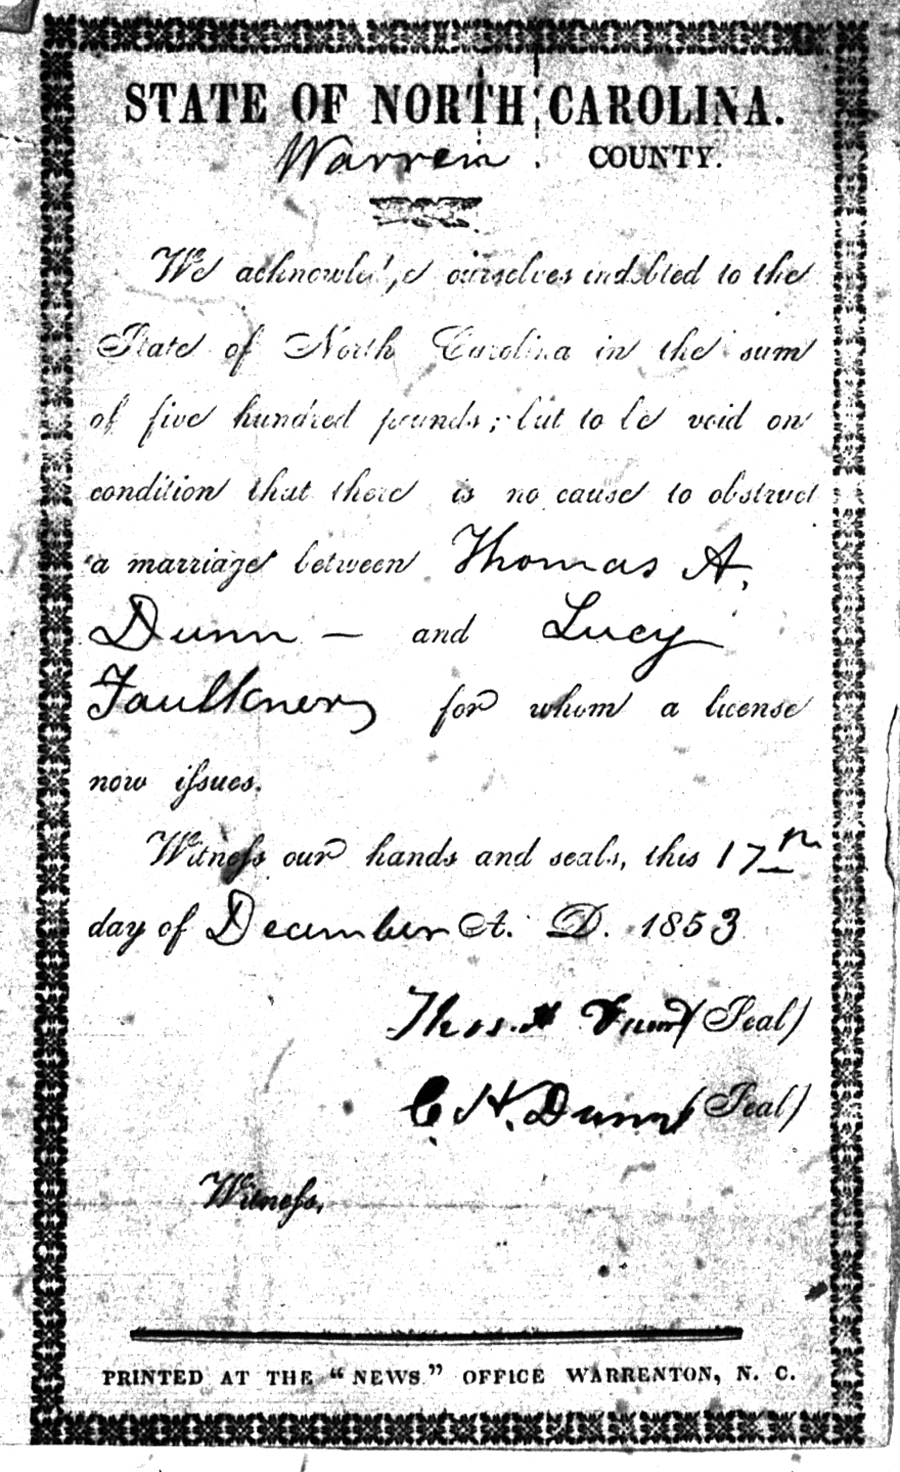 STATE OF NORTH CAROLINA.
Warren COUNTY.
We acknowledge ourselves indebted to the
State of North Carolina in the sum
of five hundred pounds; but to be void on
condition that there is no cause to obstruct
a marriage between Thomas A.
Dunn — and Lucy
Faulkner for whom a license
now issues.
Witness our hands and seals, this 17th
day of December A. D. 1853
Thos. A Dunn (Seal)
C H. Dunn (Seal)
Witness,
PRINTED AT THE “NEWS” OFFICE WARRENTON, N. C.